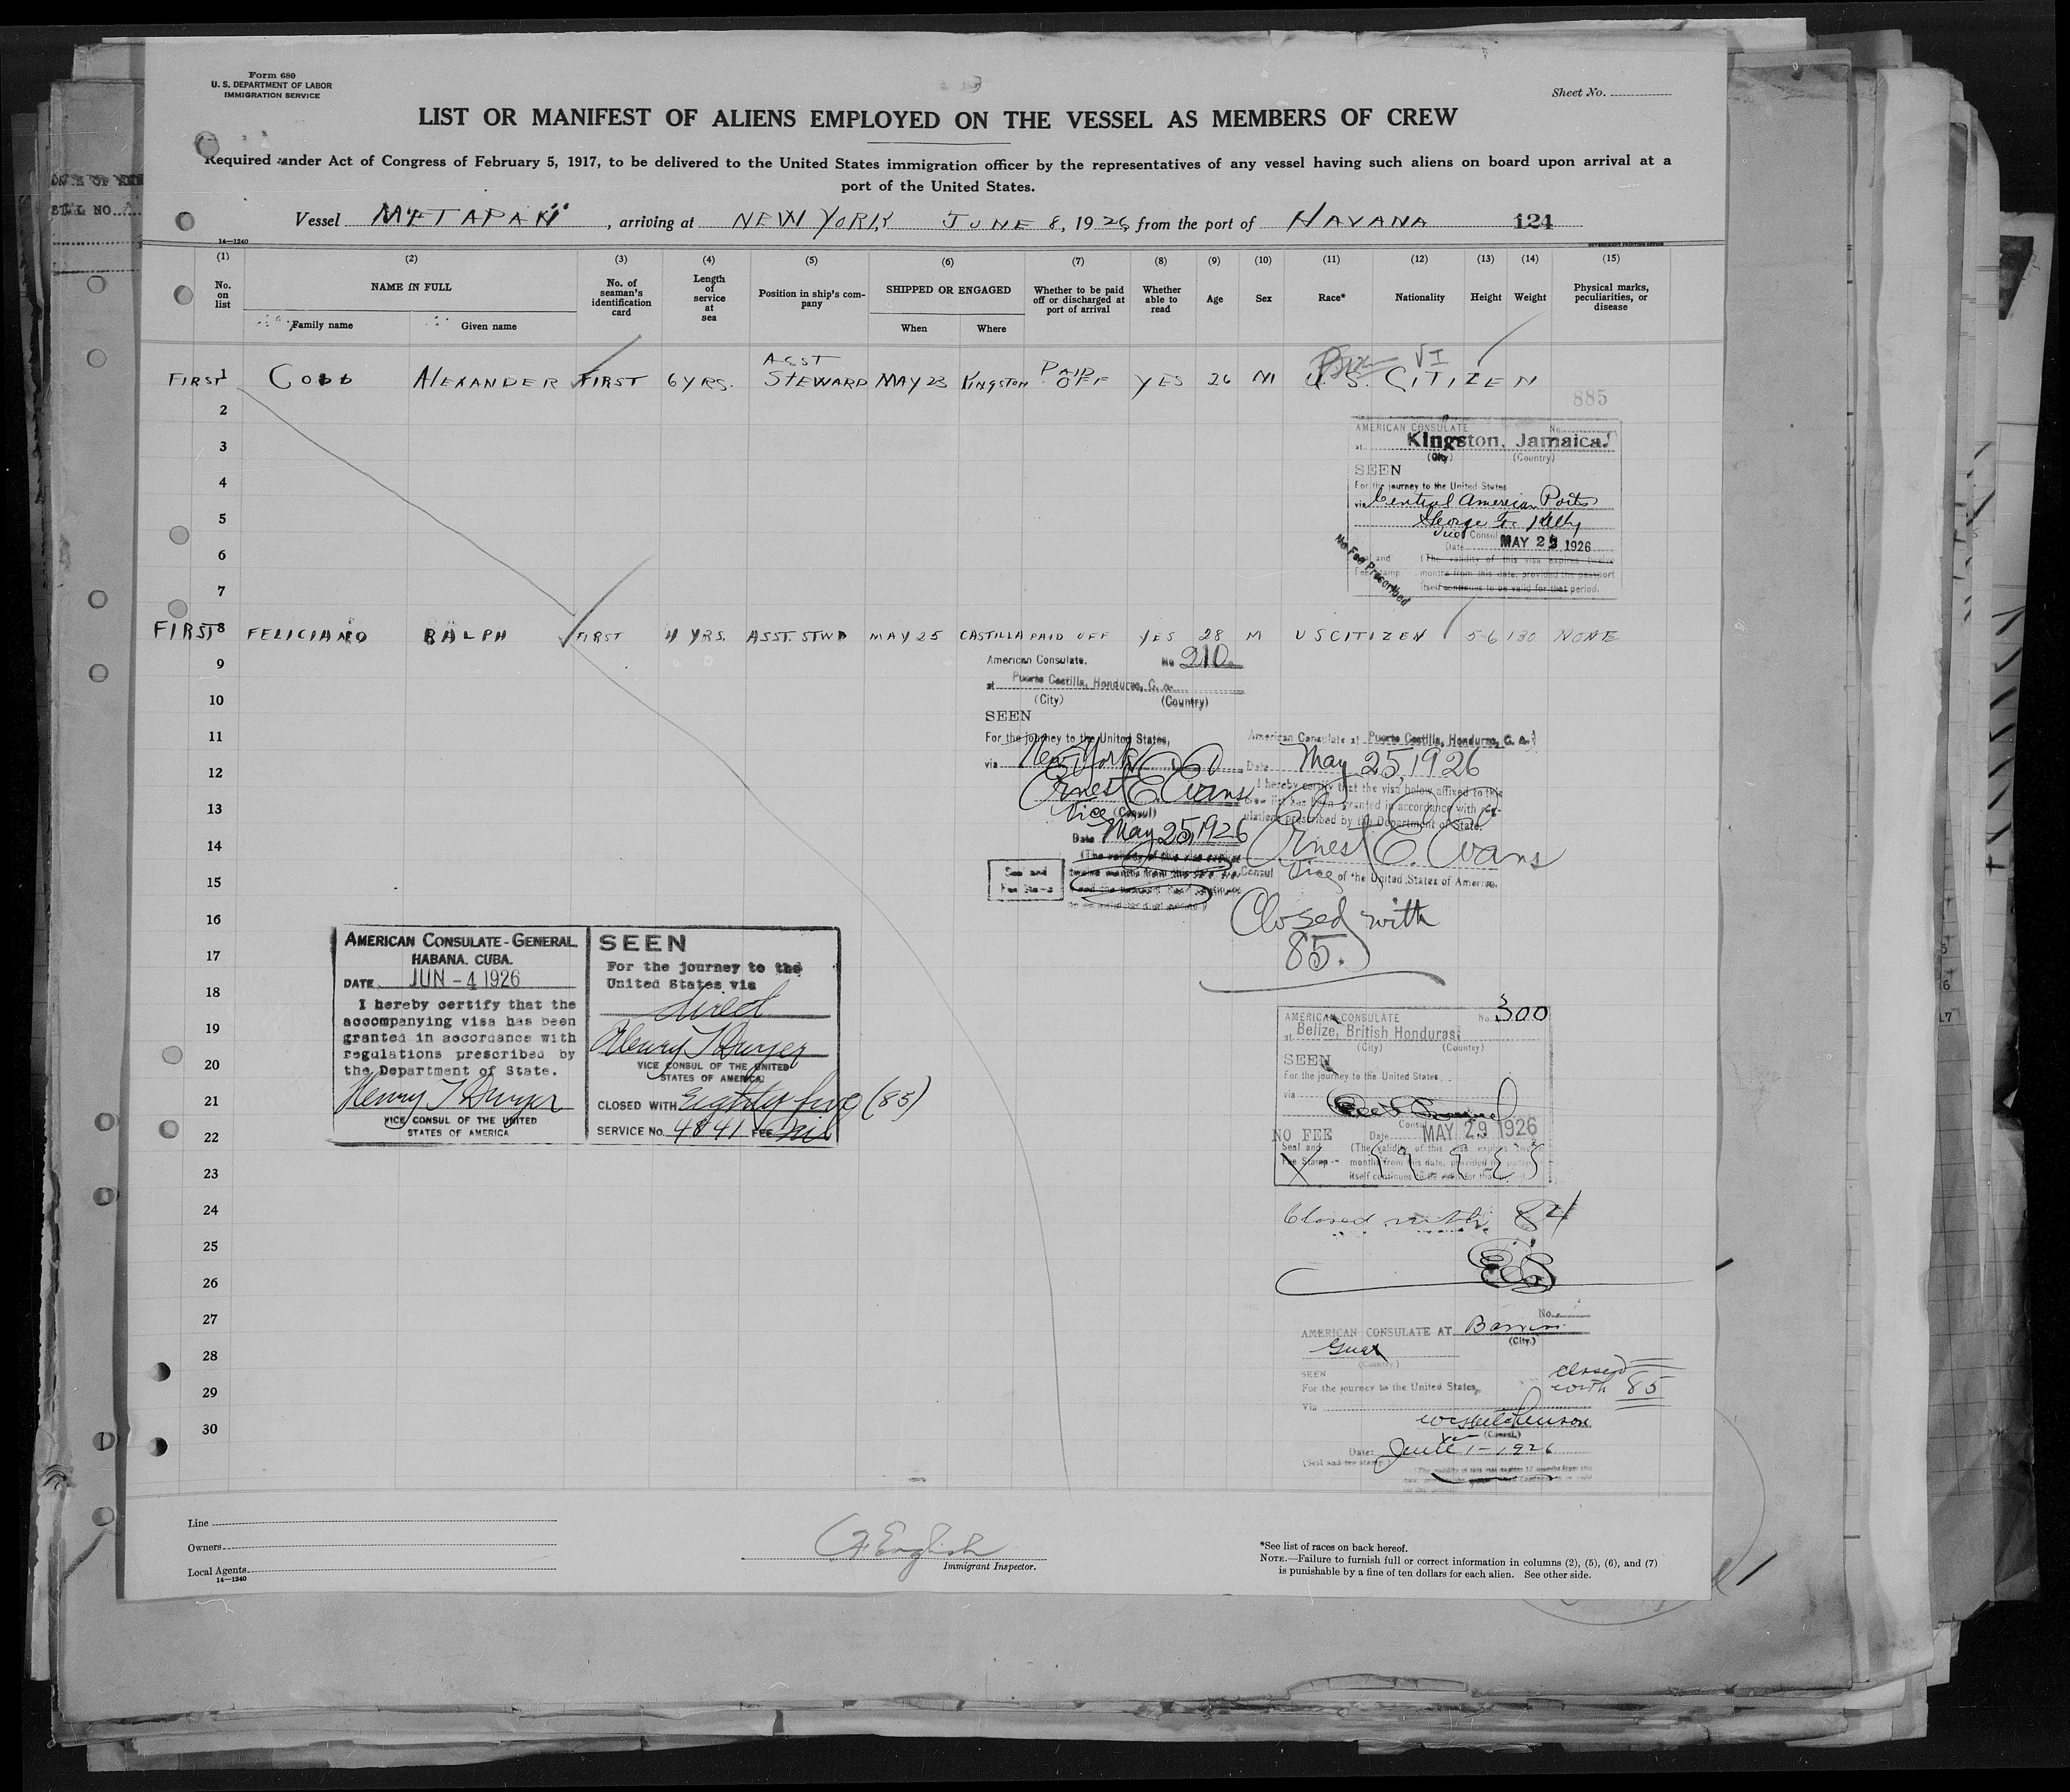 Form 680
U. S. DEPARTMENT OF LABOR
IMMIGRATION SERVICE
Sheet No.
LIST OR MANIFEST OF ALIENS EMPLOYED ON THE VESSEL AS MEMBERS OF CREW
Required under Act of Congress of February 5, 1917, to be delivered to the United States immigration officer by the representatives of any vessel having such aliens on board upon arrival at a
port of the United States.
Vessel METAPAN, arriving at NEW YORK JUNE 8, 1926 from the port of HAVANA 124
14—1240
GOVERNMENT PRINTING OFFICE
(1) (2) (3) (4) (5) (6) (7) (8) (9) (10) (11) (12) (13) (14) (15)
No. on list
NAME IN FULL
Family name
Given name
No. of seaman's identification card
Length of service at sea
Position in ship's company
SHIPPED OR ENGAGED
When
Where
Whether to be paid off or discharged at port of arrival
Whether able to read
Age
Sex
Race*
Nationality
Height
Weight
Physical marks, peculiarities, or disease
FIRST 1 COBB ALEXANDER FIRST 6 YRS. ASST STEWARD MAY 23 KINGSTON PAID OFF YES 26 M U.S. CITIZEN
VI
885
2
3
4
5
6
7
AMERICAN CONSULATE No.
at Kingston, Jamaica.
(City) (Country)
SEEN
For the journey to the United States
via Central American Ports
George F. Kelly
Vice Consul
Date MAY 23 1926
No Fee Prescribed
(The validity of this visa expires twelve
months from this date, provided the passport
itself continues to be valid for that period.
FIRST 8 FELICIANO RALPH FIRST 11 YRS. ASST. STWD MAY 25 CASTILLA PAID OFF YES 28 M US CITIZEN 5-6 130 NONE
9
10
11
12
13
14
15
American Consulate. No 210
at Puerto Castilla, Honduras, C. A.
(City) (Country)
SEEN
For the journey to the United States,
via New York
Ernest E. Evans
Vice (Consul)
Date May 25, 1926
(The validity of this visa expires
twelve months from this date
Seal and
Fee Stamp
American Consulate at Puerto Castilla, Honduras, C. A.
Date May 25, 1926
I hereby certify that the visa below affixed to this
crew list has been granted in accordance with reg-
ulations prescribed by the Department of State.
Ernest E. Evans
Vice Consul of the United States of America.
Closed with
85.
16
17
18
19
20
21
22
AMERICAN CONSULATE-GENERAL
HABANA. CUBA.
DATE JUN - 4 1926
I hereby certify that the
accompanying visa has been
granted in accordance with
regulations prescribed by
the Department of State.
Henry T Dwyer
VICE CONSUL OF THE UNITED
STATES OF AMERICA
SEEN
For the journey to the
United States via
direct
Henry T Dwyer
VICE CONSUL OF THE UNITED
STATES OF AMERICA
CLOSED WITH Eighty five (85)
SERVICE No. 4841 FEE nil
AMERICAN CONSULATE No. 300
at Belize, British Honduras.
(City) (Country)
SEEN
For the journey to the United States
via
Consul
NO FEE
Date MAY 29 1926
Seal and
Fee Stamp
(The validity of this visa expires
months from this date, provided
itself continues to be valid for that
23
24
25
26
27
28
29
30
Closed with 84
No.
AMERICAN CONSULATE AT Barrios
(City)
Guat
(Country)
SEEN
For the journey to the United States,
Via
closed
with 85
(Consul)
Date: June 1 - 1926
(Seal and fee stamp)
Line
Owners
Local Agents
14—1240
English
Immigrant Inspector.
*See list of races on back hereof.
NOTE.—Failure to furnish full or correct information in columns (2), (5), (6), and (7)
is punishable by a fine of ten dollars for each alien. See other side.